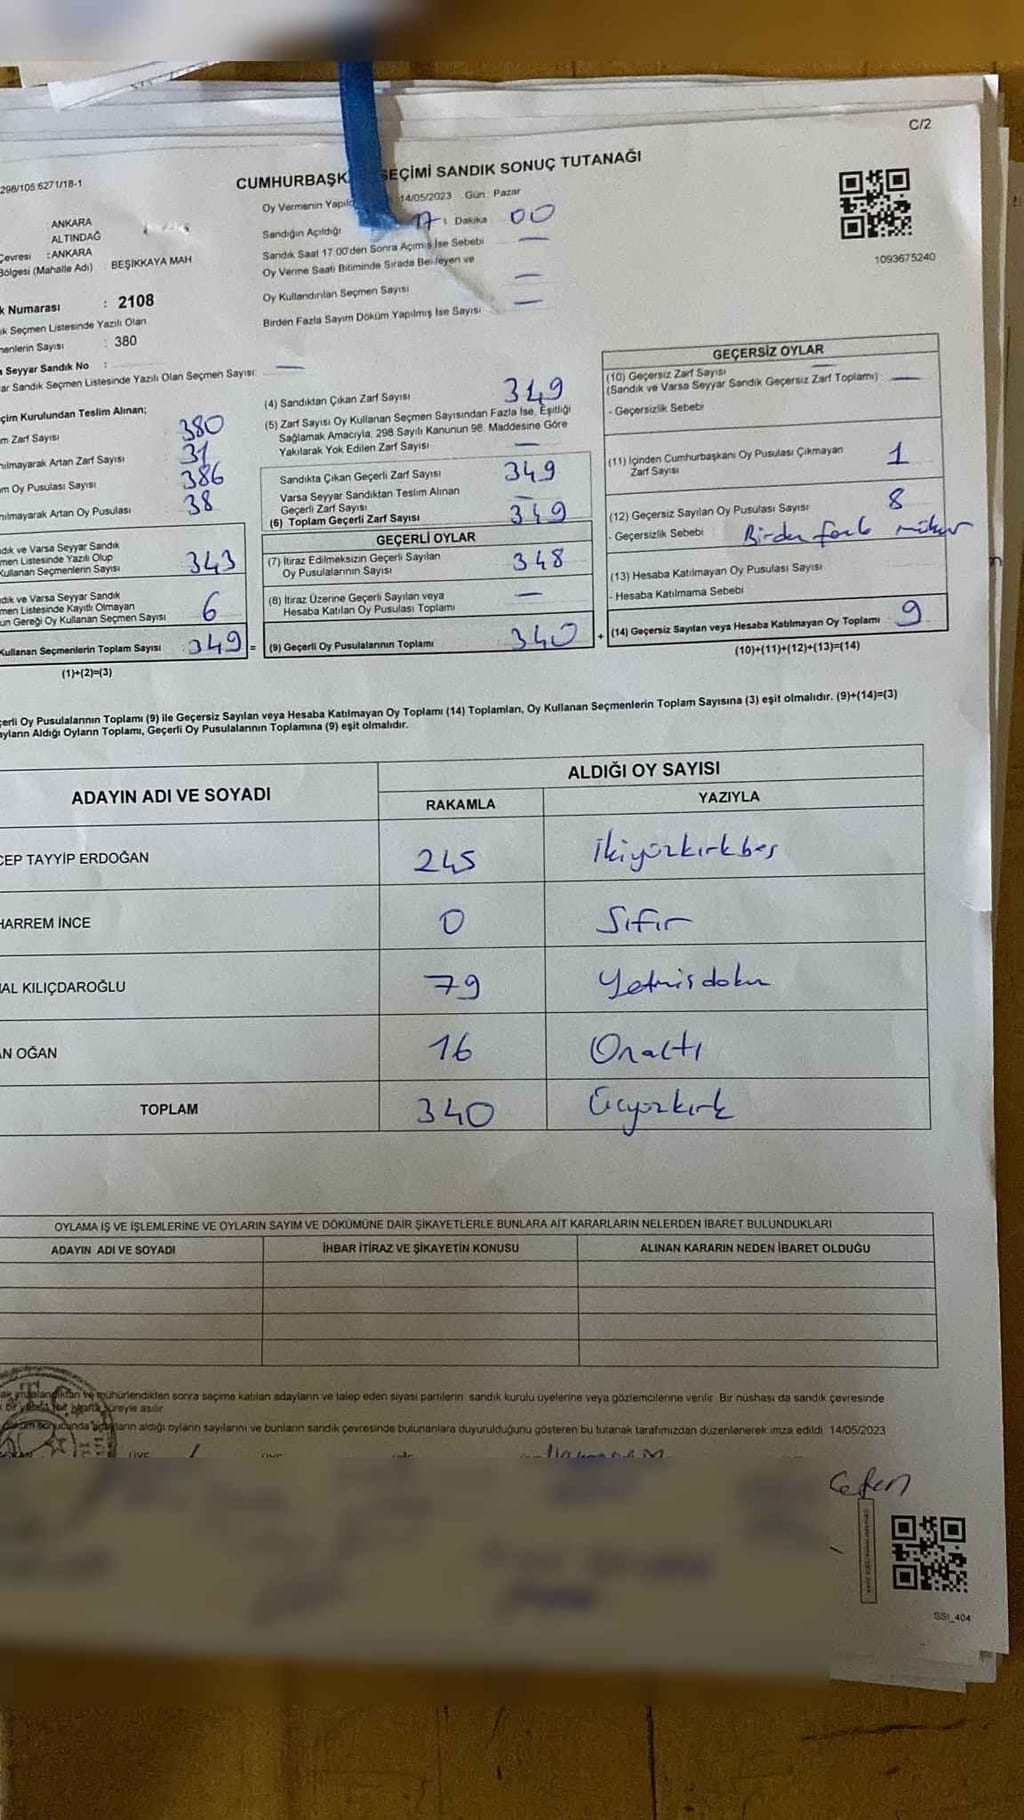 C/2
298/105.6271/18-1
CUMHURBAŞK SEÇİMİ SANDIK SONUÇ TUTANAĞI
Oy Vermenin Yapıldı 14/05/2023 Gün: Pazar
Sandığın Açıldığı 17 : Dakika 00
Sandık Saat 17 00'den Sonra Açımış İse Sebebi —
Oy Verme Saati Bitiminde Sırada Bekleyen ve
Oy Kullandırılan Seçmen Sayısı —
Birden Fazla Sayım Döküm Yapılmış İse Sayısı —
1093675240
: ANKARA
ALTINDAĞ
Çevresi : ANKARA
Bölgesi (Mahalle Adı) BEŞİKKAYA MAH
k Numarası : 2108
ık Seçmen Listesinde Yazılı Olan
menlerin Sayısı : 380
a Seyyar Sandık No :
ar Sandık Seçmen Listesinde Yazılı Olan Seçmen Sayısı: —
çim Kurulundan Teslim Alınan;
m Zarf Sayısı 380
nılmayarak Artan Zarf Sayısı 31
m Oy Pusulası Sayısı 386
nılmayarak Artan Oy Pusulası 38
dık ve Varsa Seyyar Sandık
men Listesinde Yazılı Olup
Kullanan Seçmenlerin Sayısı 343
dık ve Varsa Seyyar Sandık
men Listesinde Kayıtlı Olmayan
un Gereği Oy Kullanan Seçmen Sayısı 6
Kullanan Seçmenlerin Toplam Sayısı 349 =
(1)+(2)=(3)
(4) Sandıktan Çıkan Zarf Sayısı 349
(5) Zarf Sayısı Oy Kullanan Seçmen Sayısından Fazla İse, Eşitliği
Sağlamak Amacıyla, 298 Sayılı Kanunun 98. Maddesine Göre
Yakılarak Yok Edilen Zarf Sayısı —
Sandıkta Çıkan Geçerli Zarf Sayısı 349
Varsa Seyyar Sandıktan Teslim Alınan
Geçerli Zarf Sayısı —
(6) Toplam Geçerli Zarf Sayısı 349
GEÇERLİ OYLAR
(7) İtiraz Edilmeksizin Geçerli Sayılan
Oy Pusulalarının Sayısı 348
(8) İtiraz Üzerine Geçerli Sayılan veya
Hesaba Katılan Oy Pusulası Toplamı —
(9) Geçerli Oy Pusulalarının Toplamı 340 +
GEÇERSİZ OYLAR
(10) Geçersiz Zarf Sayısı —
(Sandık ve Varsa Seyyar Sandık Geçersiz Zarf Toplamı) —
- Geçersizlik Sebebi
(11) İçinden Cumhurbaşkanı Oy Pusulası Çıkmayan
Zarf Sayısı 1
(12) Geçersiz Sayılan Oy Pusulası Sayısı 8
- Geçersizlik Sebebi Birden fazla mühür
(13) Hesaba Katılmayan Oy Pusulası Sayısı
- Hesaba Katılmama Sebebi
(14) Geçersiz Sayılan veya Hesaba Katılmayan Oy Toplamı 9
(10)+(11)+(12)+(13)=(14)
çerli Oy Pusulalarının Toplamı (9) ile Geçersiz Sayılan veya Hesaba Katılmayan Oy Toplamı (14) Toplamları, Oy Kullanan Seçmenlerin Toplam Sayısına (3) eşit olmalıdır. (9)+(14)=(3)
ayların Aldığı Oyların Toplamı, Geçerli Oy Pusulalarının Toplamına (9) eşit olmalıdır.
ADAYIN ADI VE SOYADI ALDIĞI OY SAYISI
RAKAMLA YAZIYLA
CEP TAYYİP ERDOĞAN 245 İkiyüzkırkbeş
HARREM İNCE 0 Sıfır
AL KILIÇDAROĞLU 79 Yetmişdokuz
AN OĞAN 16 Onaltı
TOPLAM 340 Üçyüzkırk
OYLAMA İŞ VE İŞLEMLERİNE VE OYLARIN SAYIM VE DÖKÜMÜNE DAİR ŞİKAYETLERLE BUNLARA AİT KARARLARIN NELERDEN İBARET BULUNDUKLARI
ADAYIN ADI VE SOYADI İHBAR İTİRAZ VE ŞİKAYETİN KONUSU ALINAN KARARIN NEDEN İBARET OLDUĞU
ak imzalandıktan ve mühürlendikten sonra seçime katılan adayların ve talep eden siyasi partilerin sandık kurulu üyelerine veya gözlemcilerine verilir. Bir nüshası da sandık çevresinde
bir yere bir hafta süreyle asılır.
döküm sonucunda adayların aldığı oyların sayılarını ve bunların sandık çevresinde bulunanlara duyurulduğunu gösteren bu tutanak tarafımızdan düzenlenerek imza edildi. 14/05/2023
SSI_404